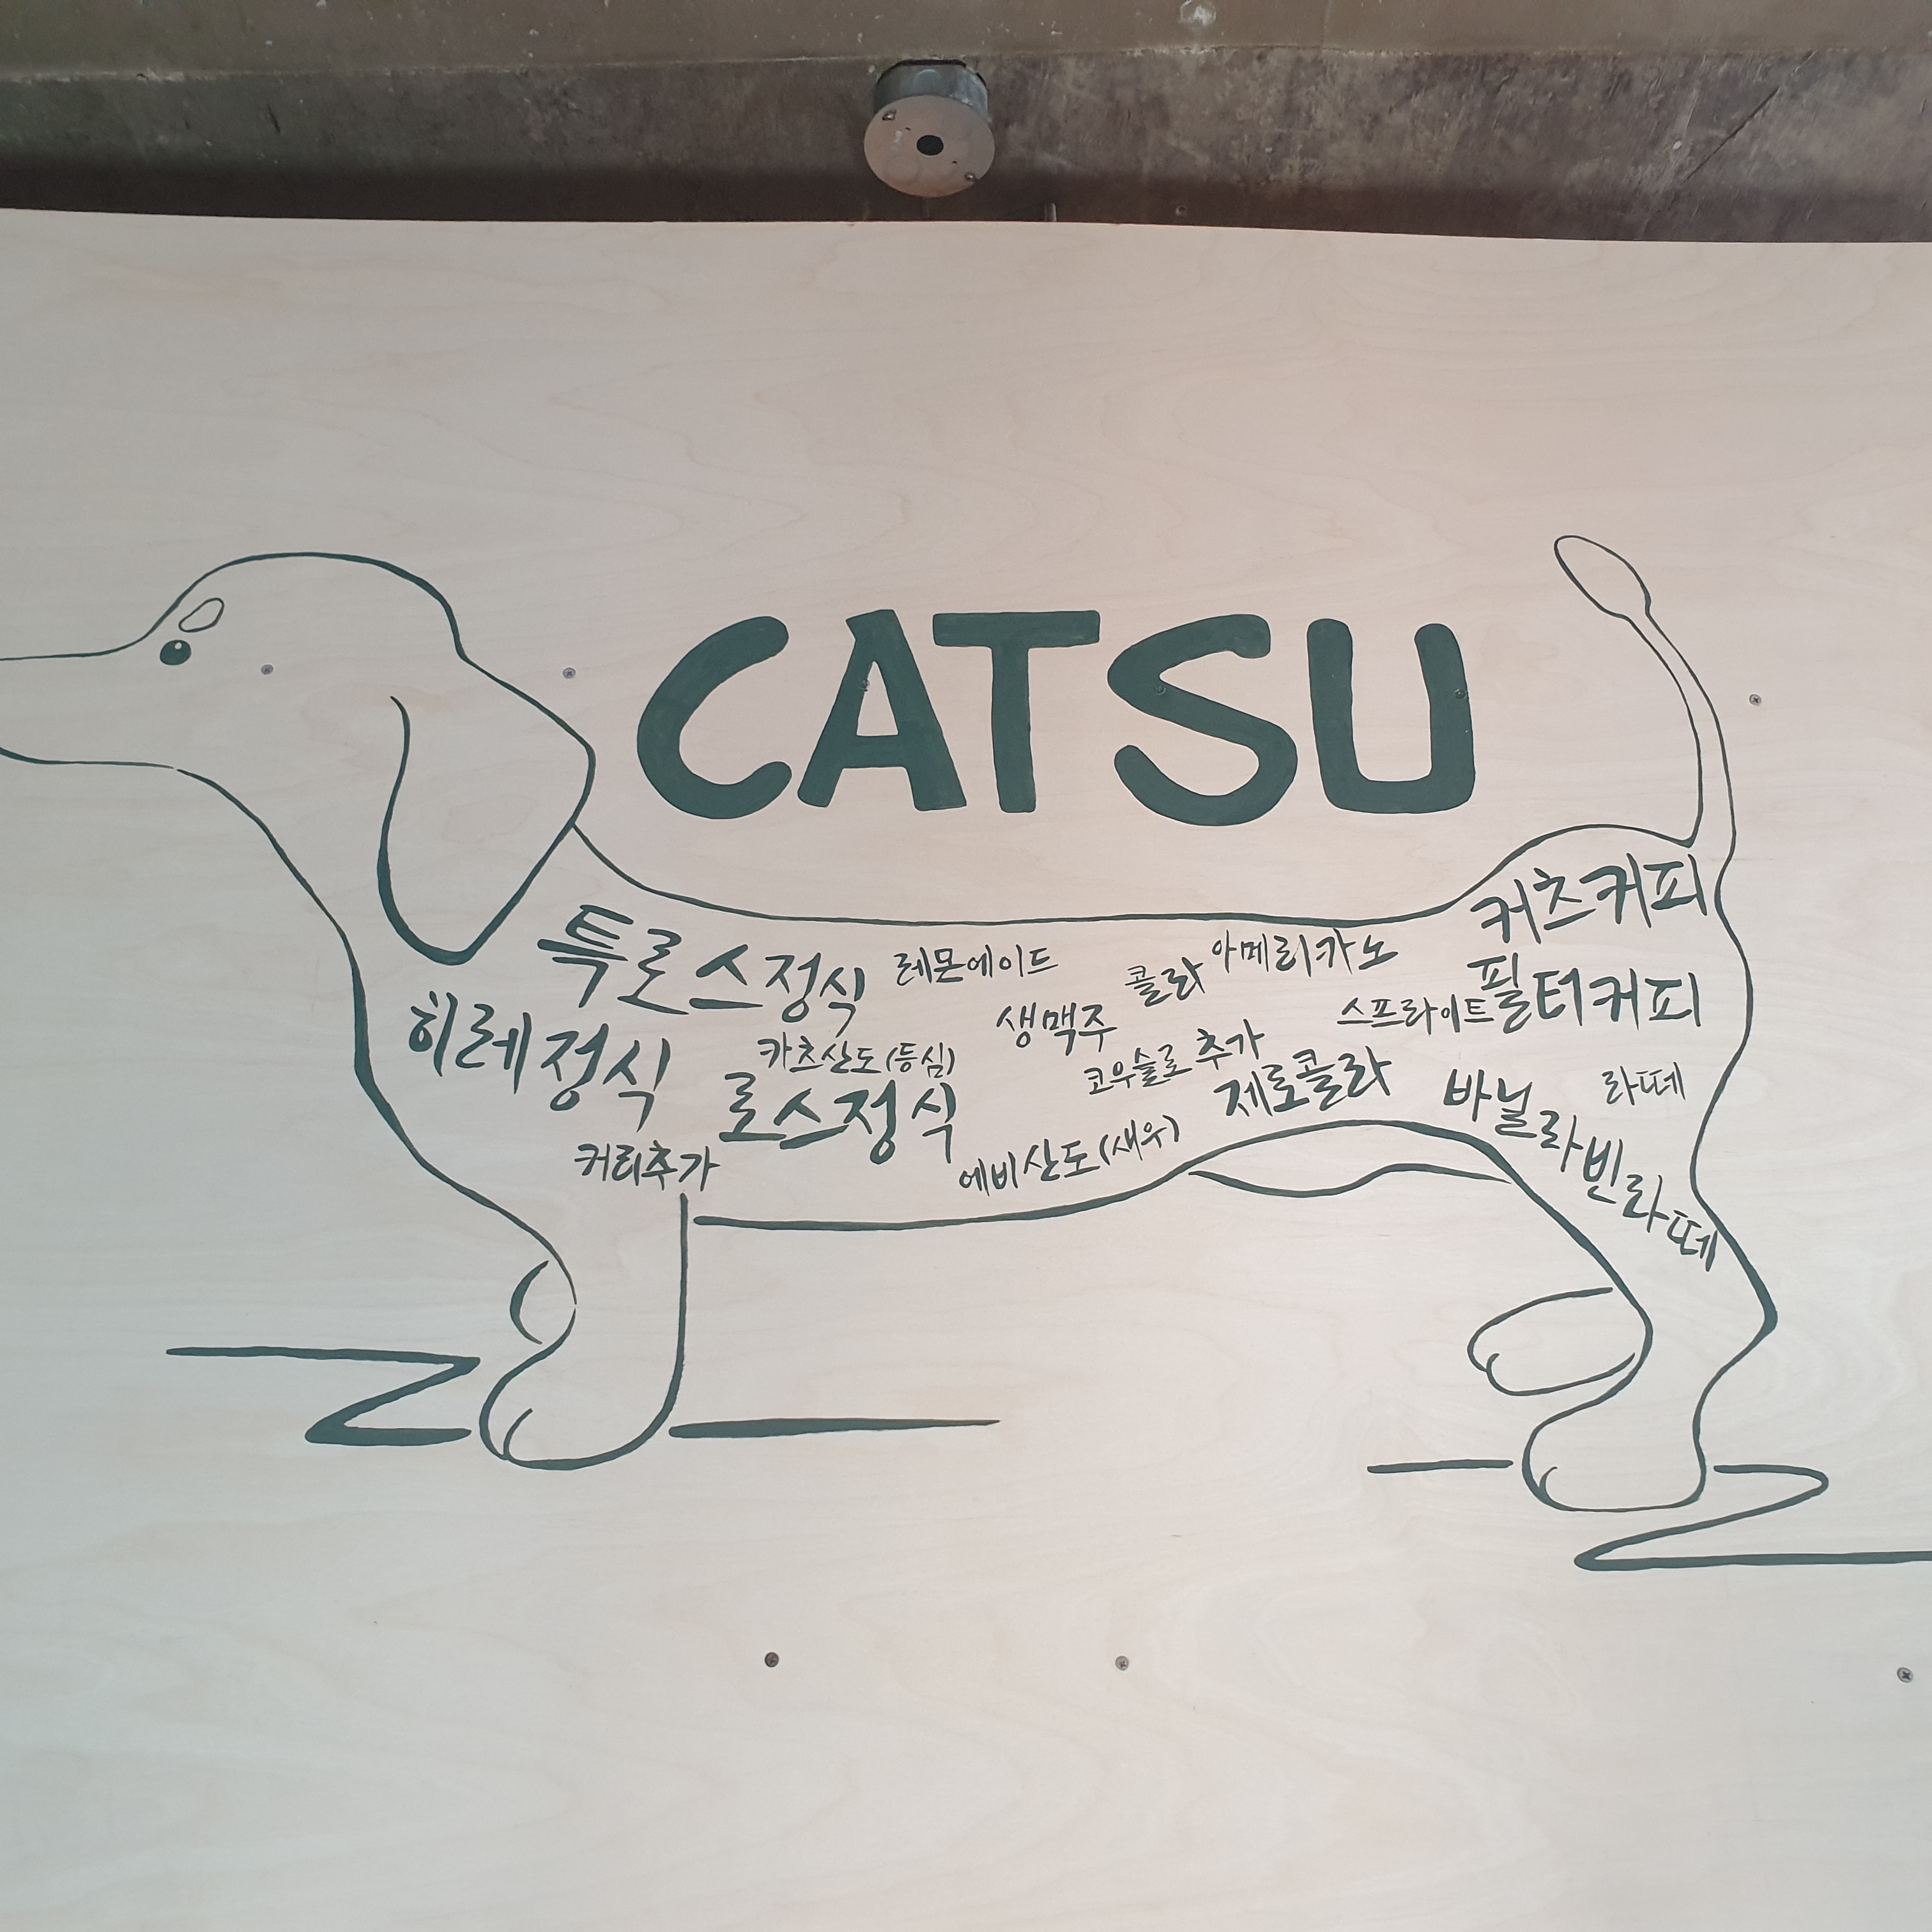 CATSU
특로스정식
레몬에이드
콜라
아메리카노
커츠커피
히레정식
카츠산도(등심)
생맥주
스프라이트
필터커피
로스정식
코우슬로 추가
제로콜라
바닐라빈라떼
라떼
커리추가
에비산도(새우)